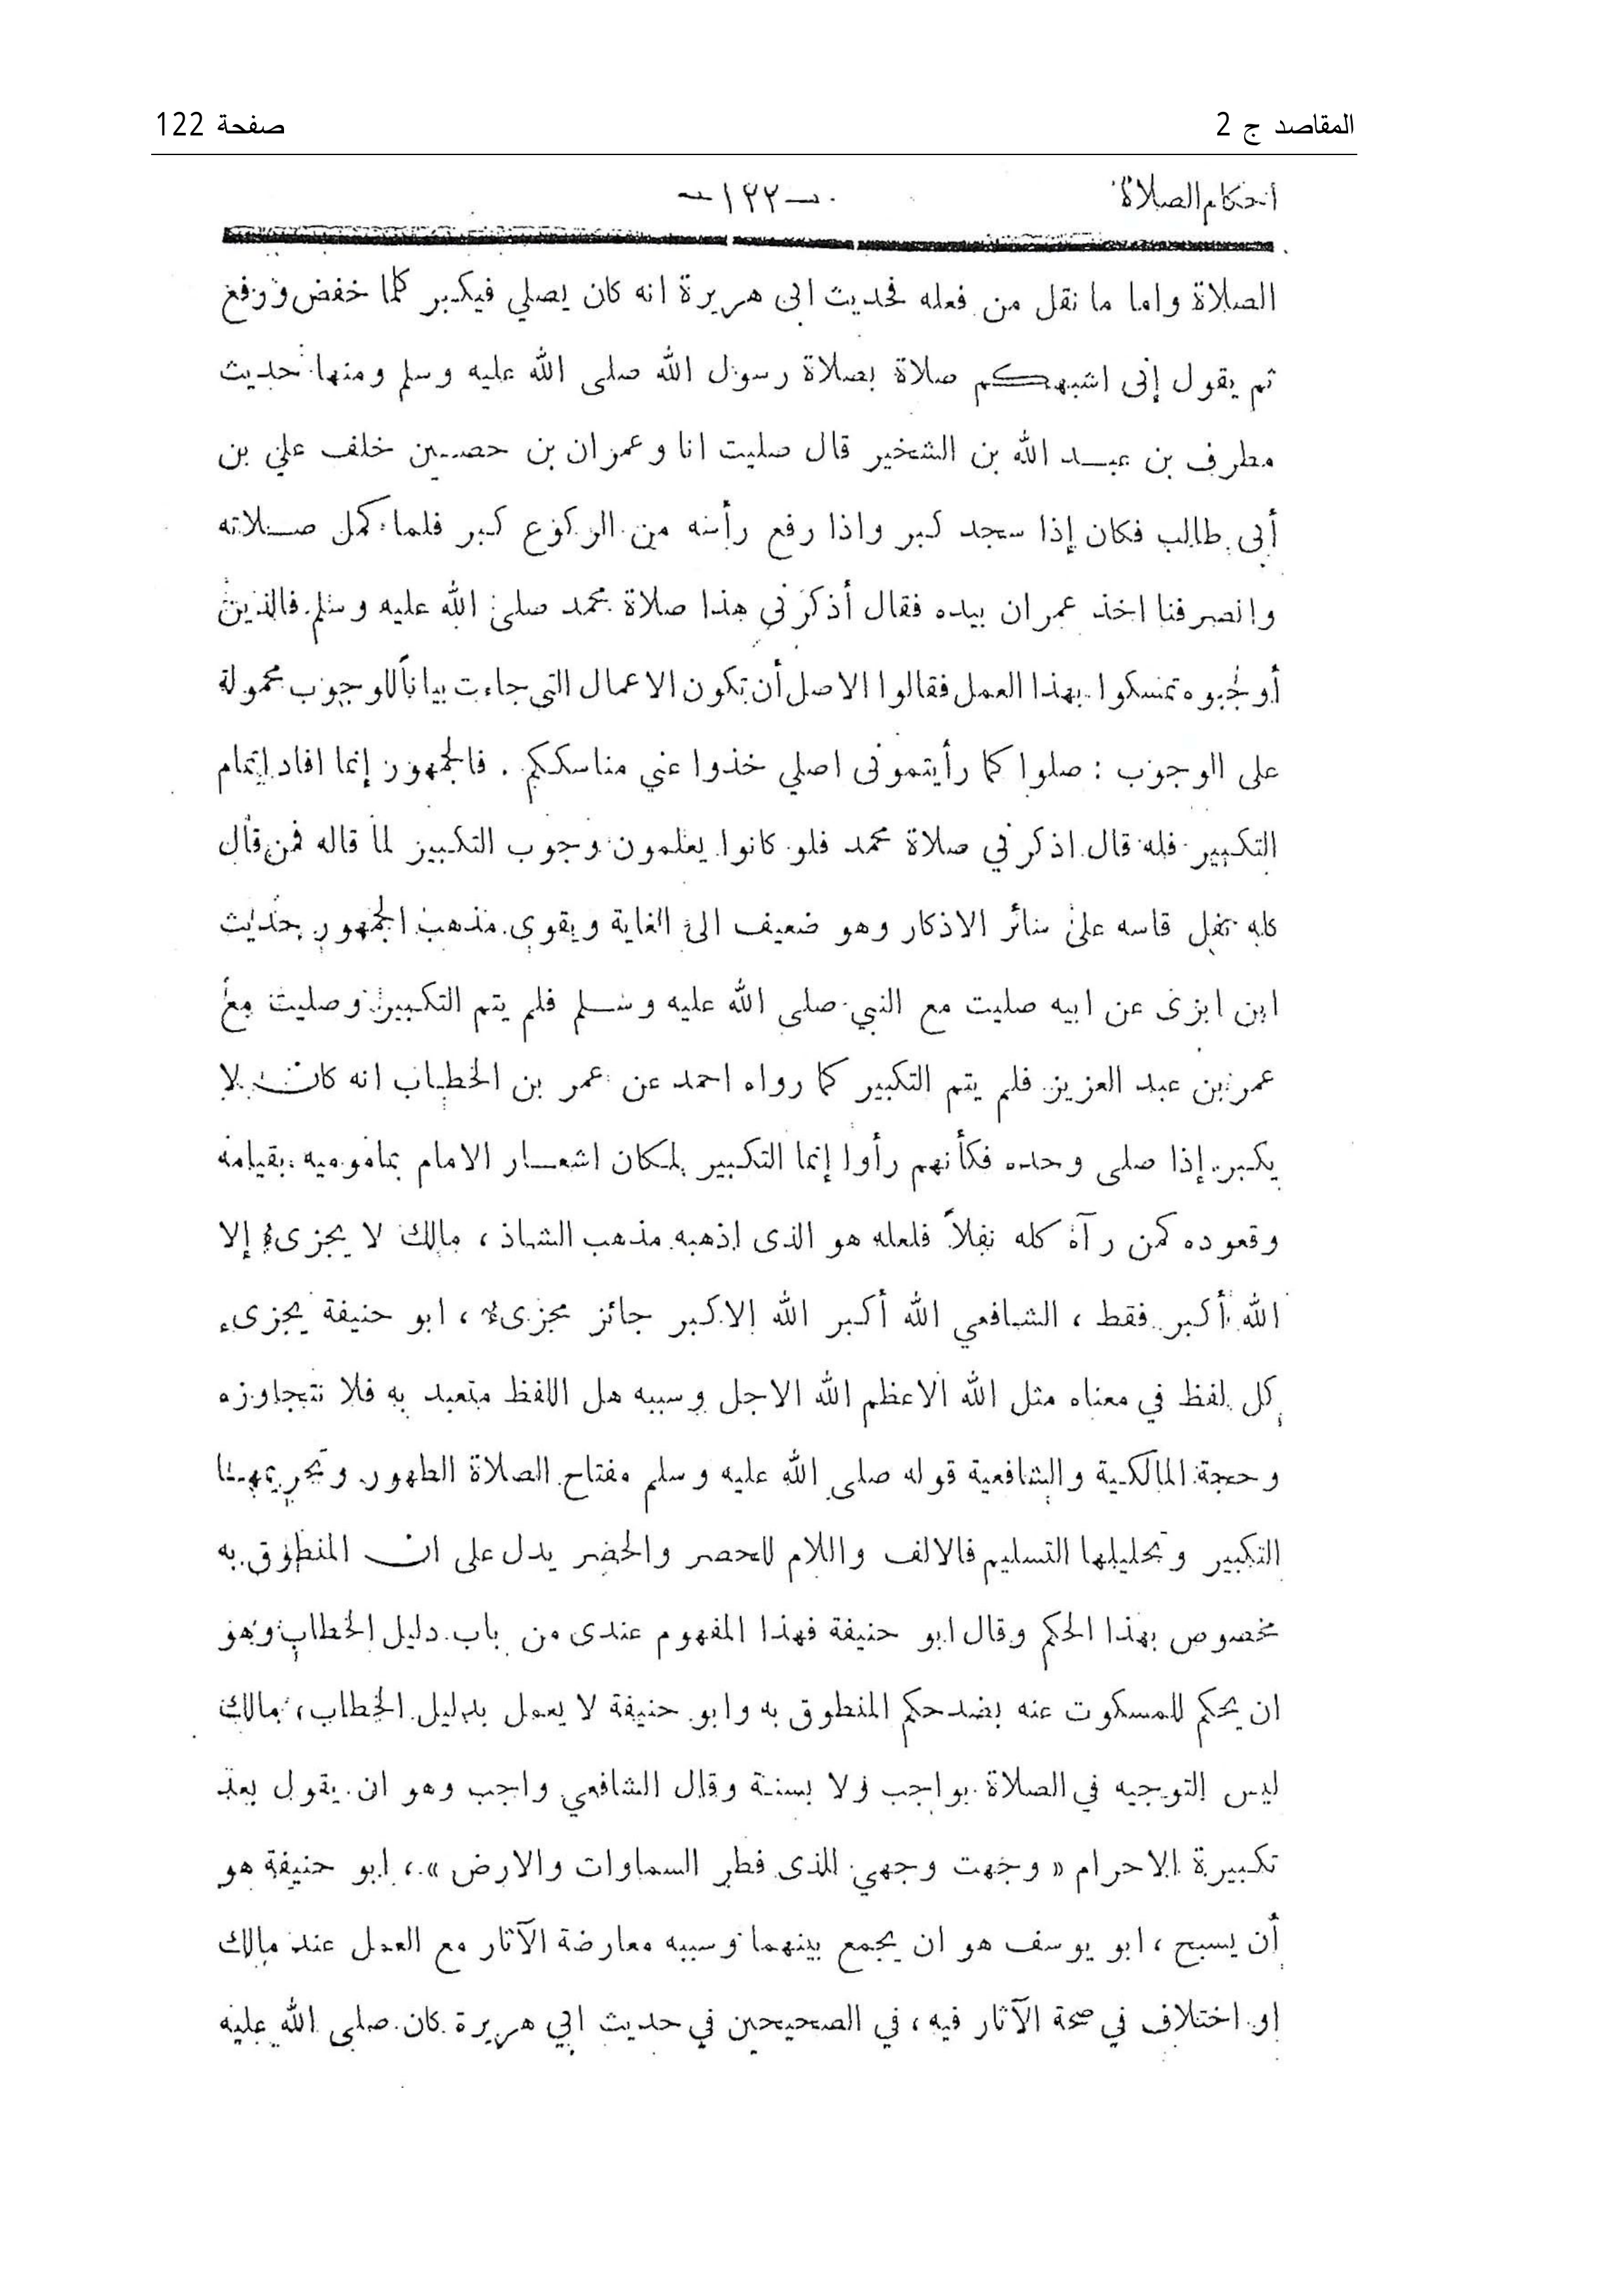 المقاصد ج 2
صفحة 122
أحكام الصلاة
— ١٢٢ —
الصلاة واما ما نقل من فعله فحديث ابى هريرة انه كان يصلي فيكبر كلما خفض ورفع
ثم يقول إنى اشبهكم صلاة بصلاة رسول الله صلى الله عليه وسلم ومنها حديث
مطرف بن عبد الله بن الشخير قال صليت انا وعمران بن حصين خلف علي بن
أبى طالب فكان إذا سجد كبر واذا رفع رأسه من الركوع كبر فلما كمل صلاته
وانصرفنا اخذ عمران بيده فقال أذكرني هذا صلاة محمد صلى الله عليه وسلم فالذين
أوجبوه تمسكوا بهذا العمل فقالوا الاصل أن تكون الاعمال التي جاءت بياناً للوجوب محمولة
على الوجوب : صلوا كما رأيتمونى اصلي خذوا عني مناسككم . فالجمهور إنما افاد إتمام
التكبير فله قال اذكرني صلاة محمد فلو كانوا يعلمون وجوب التكبير لما قاله فمن قال
كله نفل قاسه على سائر الاذكار وهو ضعيف الى الغاية ويقوى مذهب الجمهور حديث
ابن ابزى عن ابيه صليت مع النبي صلى الله عليه وسلم فلم يتم التكبير وصليت مع
عمر بن عبد العزيز فلم يتم التكبير كما رواه احمد عن عمر بن الخطاب انه كان لا
يكبر إذا صلى وحده فكأنهم رأوا إنما التكبير لمكان اشعار الامام بمأموميه بقيامه
وقعوده كمن رآه كله نفلاً فلعله هو الذى اذهبه مذهب الشاذ ، مالك لا يجزىء إلا
الله أكبر فقط ، الشافعي الله أكبر الله الاكبر جائز مجزىء ، ابو حنيفة يجزىء
كل لفظ في معناه مثل الله الاعظم الله الاجل وسببه هل اللفظ متعبد به فلا نتجاوزه
وحجة المالكية والشافعية قوله صلى الله عليه وسلم مفتاح الصلاة الطهور وتحريمها
التكبير وتحليلها التسليم فالالف واللام للحصر والحصر يدل على ان المنطوق به
مخصوص بهذا الحكم وقال ابو حنيفة فهذا المفهوم عندى من باب دليل الخطاب وهو
ان يحكم للمسكوت عنه بضد حكم المنطوق به وابو حنيفة لا يعمل بدليل الخطاب ، مالك
ليس التوجيه في الصلاة بواجب ولا بسنة وقال الشافعي واجب وهو ان يقول بعد
تكبيرة الاحرام « وجهت وجهي للذى فطر السماوات والارض » ، ابو حنيفة هو
أن يسبح ، ابو يوسف هو ان يجمع بينهما وسببه معارضة الآثار مع العمل عند مالك
او اختلاف في صحة الآثار فيه ، في الصحيحين في حديث ابي هريرة كان صلى الله عليه